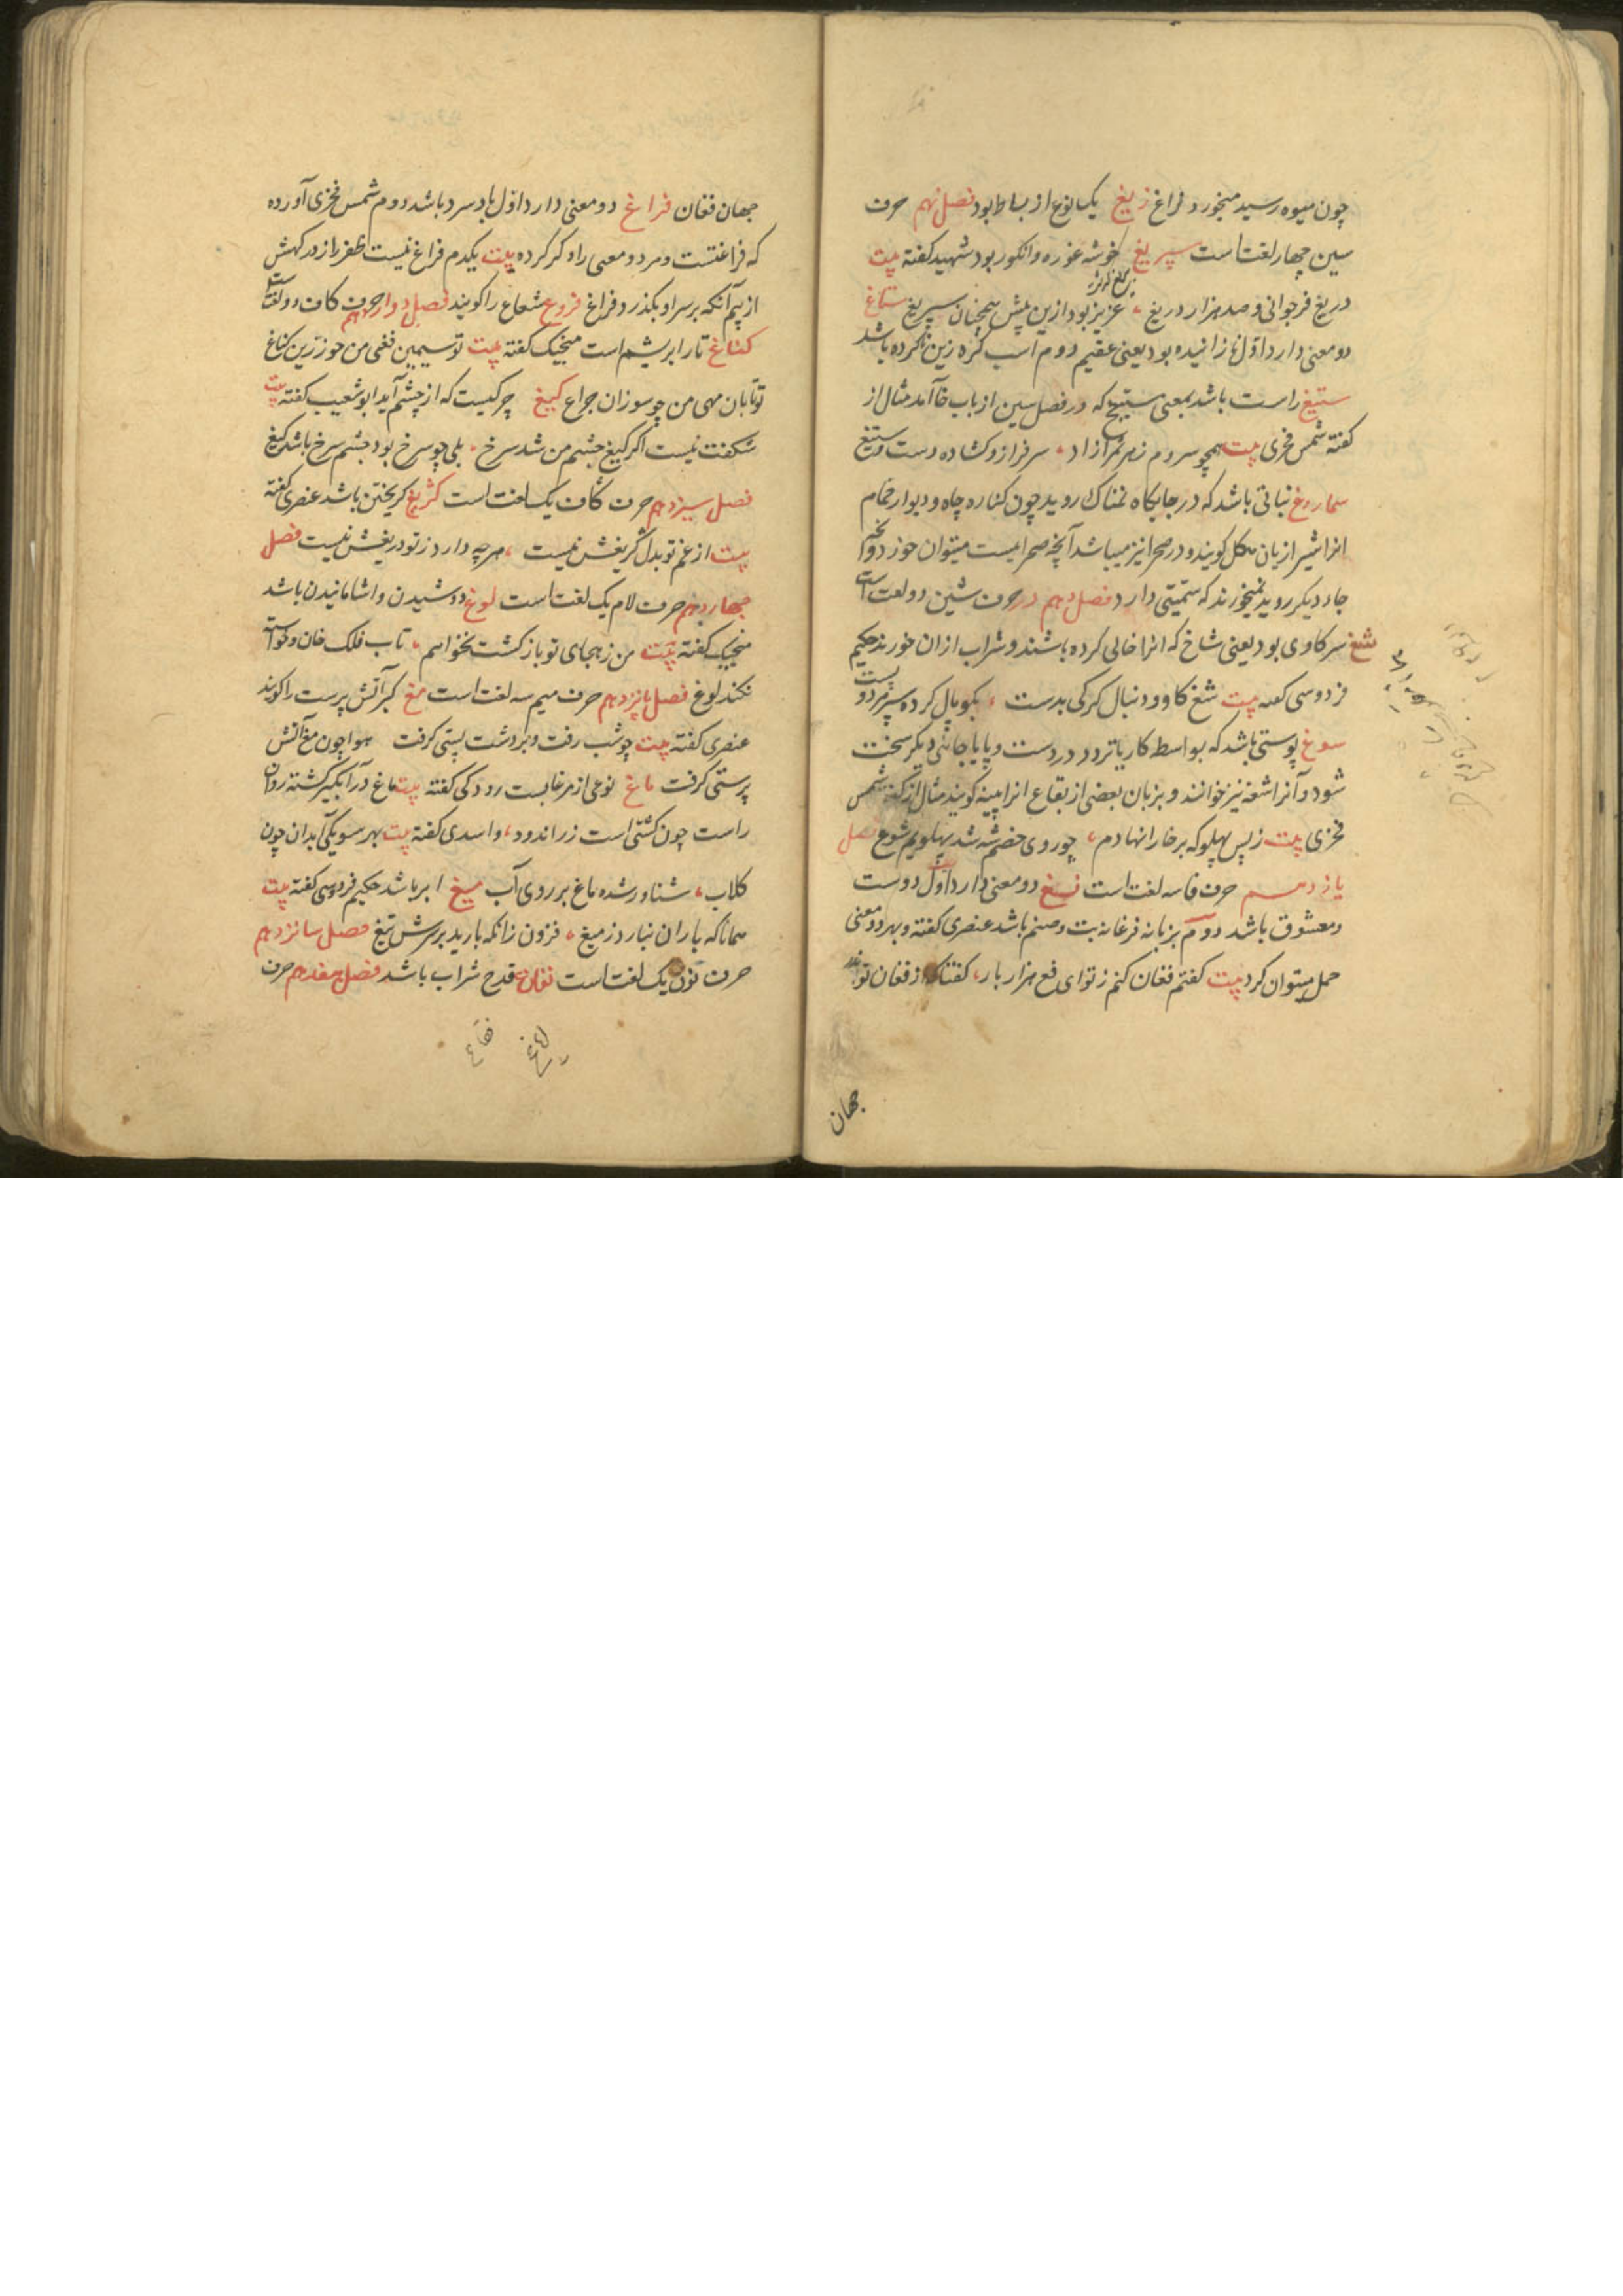 چون میوه رسید میخورد فراغ زیغ یک نوع از بساط بود فصل نهم حرف
سین چهار لغت است سپریغ خوشه غوره و انکور بود شهید کفته بیت
دریغ فر جوانی و صد هزار دریغ عزیز بود ازین پیش همچنان سپریغ ستاغ
دو معنی دارد اول نازانیده بود یعنی عقیم دوم اسب کره زین ناکرده باشد
ستیغ راست باشد بمعنی ستیخ که در فصل سین از باب خا آمد مثال از
کفته شمس فخری بیت همچو سروم زهر ثمر آزاد سرفراز و کشاده دست و ستیغ
سماروغ نباتی باشد که در جایکاه نمناک روید چون کناره چاه و دیوار حمام
انرا شیرازیان هکل کویند و در صحرا نیز میباشد آنچه صحرایست میتوان خورد و آنچه
جاء دیکر روید نمیخورند که سمیتی دارد فصل دهم در حرف شین دو لغت است
شغ سر کاوی بود یعنی شاخ که انرا خالی کرده باشند و شراب ازان خورند حکیم
فردوسی کفته بیت شغ کاو و دنبال کرکی بدست بکوپال کرده سر مرد و پست
سوغ پوستی باشد که بواسط کار یا تردد در دست و پا یا جائی دیکر سخت
شود و آنرا شغه نیز خوانند و بزبان بعضی از بقاع انرا پینه کویند مثال از کفته شمس
فخری بیت ز پس پهلو که بر خارا نهادم چو روی خصم شه شد پهلویم شوغ فصل
یازدهم حرف فا سه لغت است فغ دو معنی دارد اول دوست
و معشوق باشد دوم بزبان فرغانه بت و صنم باشد عنصری کفته و بهر دو معنی
حمل میتوان کرد بیت کفتم فغان کنم ز تو ای فغ هزار بار کفتا که از فغان تو
جهان
جهان فغان فراغ دو معنی دارد اول باد سرد باشد دوم شمس فخری آورده
که فراغتست و هر دو معنی را ذکر کرده بیت یکدم فراغ نیست ظفر را ز درکهش
از بیم آنکه بر سر او بکذرد فراغ فروغ شعاع را کویند فصل دوازدهم حرف کاف دو لغت است
کناغ تار ابریشم است منجیک کفته بیت تو سیمین فغی من چو زرین کناغ
تو تابان مهی من چو سوزان چراغ کیغ چرکیست که از چشم آید ابو شعیب کفته بیت
شکفت نیست اکر کیغ چشم من شد سرخ بلی چو سرخ بود چشم سرخ باشد کیغ
فصل سیزدهم حرف کاف یک لغت است کریغ کریختن باشد عنصری کفته
بیت از غم تو بدل کریغش نیست هرچه دارد ز تو دریغش نیست فصل
چهاردهم حرف لام یک لغت است لوغ دوشیدن و اشامانیدن باشد
منجیک کفته بیت من ز هجای تو باز کشت نخواهم تاب فلک خان و خواسته
نکند لوغ فصل پانزدهم حرف میم سه لغت است مغ کبر آتش پرست را کویند
عنصری کفته بیت چو شب رفت و بر دشت پستی کرفت هوا چون مغ آتش
پرستی کرفت ماغ نوعی از مرغابست رودکی کفته بیت ماغ در آبکیر کشته روان
راست چون کشتی است زر اندود و اسدی کفته بیت بهر سو یکی آبدان چون
کلاب شناور شده ماغ بر روی آب میغ ابر باشد حکیم فردوسی کفته بیت
همانا که باران نبارد ز میغ فزون زانکه بارید بر سرش تیغ فصل سانزدهم
حرف نون یک لغت است نغاغ قدح شراب باشد فصل هفدهم حرف